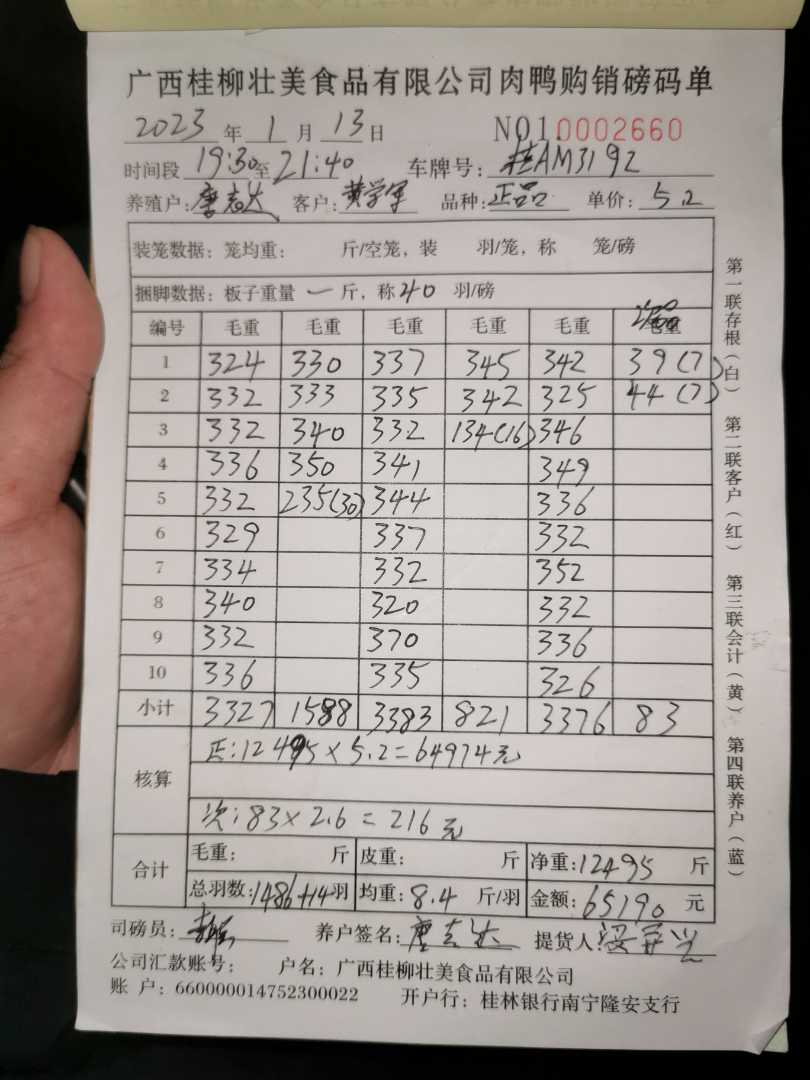 广西桂柳壮美食品有限公司肉鸭购销磅码单
2023 年 1 月 13 日 NO10002660
时间段 19:30至21:40 车牌号: 桂AM3192
养殖户: 唐志达 客户: 黄学军 品种: 正品 单价: 5.2
装笼数据: 笼均重: 斤/空笼, 装 羽/笼, 称 笼/磅
捆脚数据: 板子重量 一 斤, 称 40 羽/磅
编号 毛重 毛重 毛重 毛重 毛重
1 324 330 337 345 342 39(7)
2 332 333 335 342 325 44(7)
3 332 340 332 134(16) 346
4 336 350 341 349
5 332 235(30) 344 336
6 329 337 332
7 334 332 352
8 340 320 332
9 332 370 336
10 336 335 326
小计 3327 1588 3383 821 3376 83
核算 正:12495×5.2=64974元
次:83×2.6=216元
合计 毛重: 斤 皮重: 斤 净重:12495 斤
总羽数:1486+14羽 均重:8.4 斤/羽 金额:65190 元
司磅员: 养户签名: 唐志达 提货人:
公司汇款账号: 户名: 广西桂柳壮美食品有限公司
账 户: 660000014752300022 开户行: 桂林银行南宁隆安支行
第一联存根(白) 第二联客户(红) 第三联会计(黄) 第四联养户(蓝)